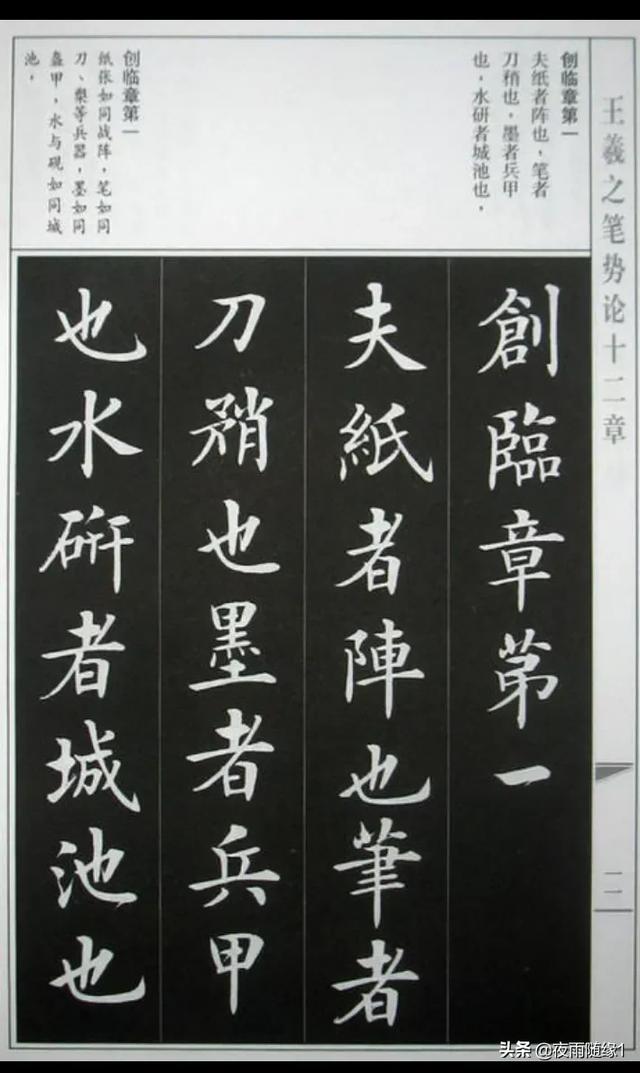 王羲之笔势论十二章
二
创临章第一
夫纸者阵也，笔者
刀稍也，墨者兵甲
也，水研者城池也，
创临章第一
纸张如同战阵，笔如同
刀、槊等兵器，墨如同
盔甲，水与砚如同城
池。
創臨章苐一
夫紙者陣也筆者
刀矟也墨者兵甲
也水硏者城池也
头条 @夜雨随缘1